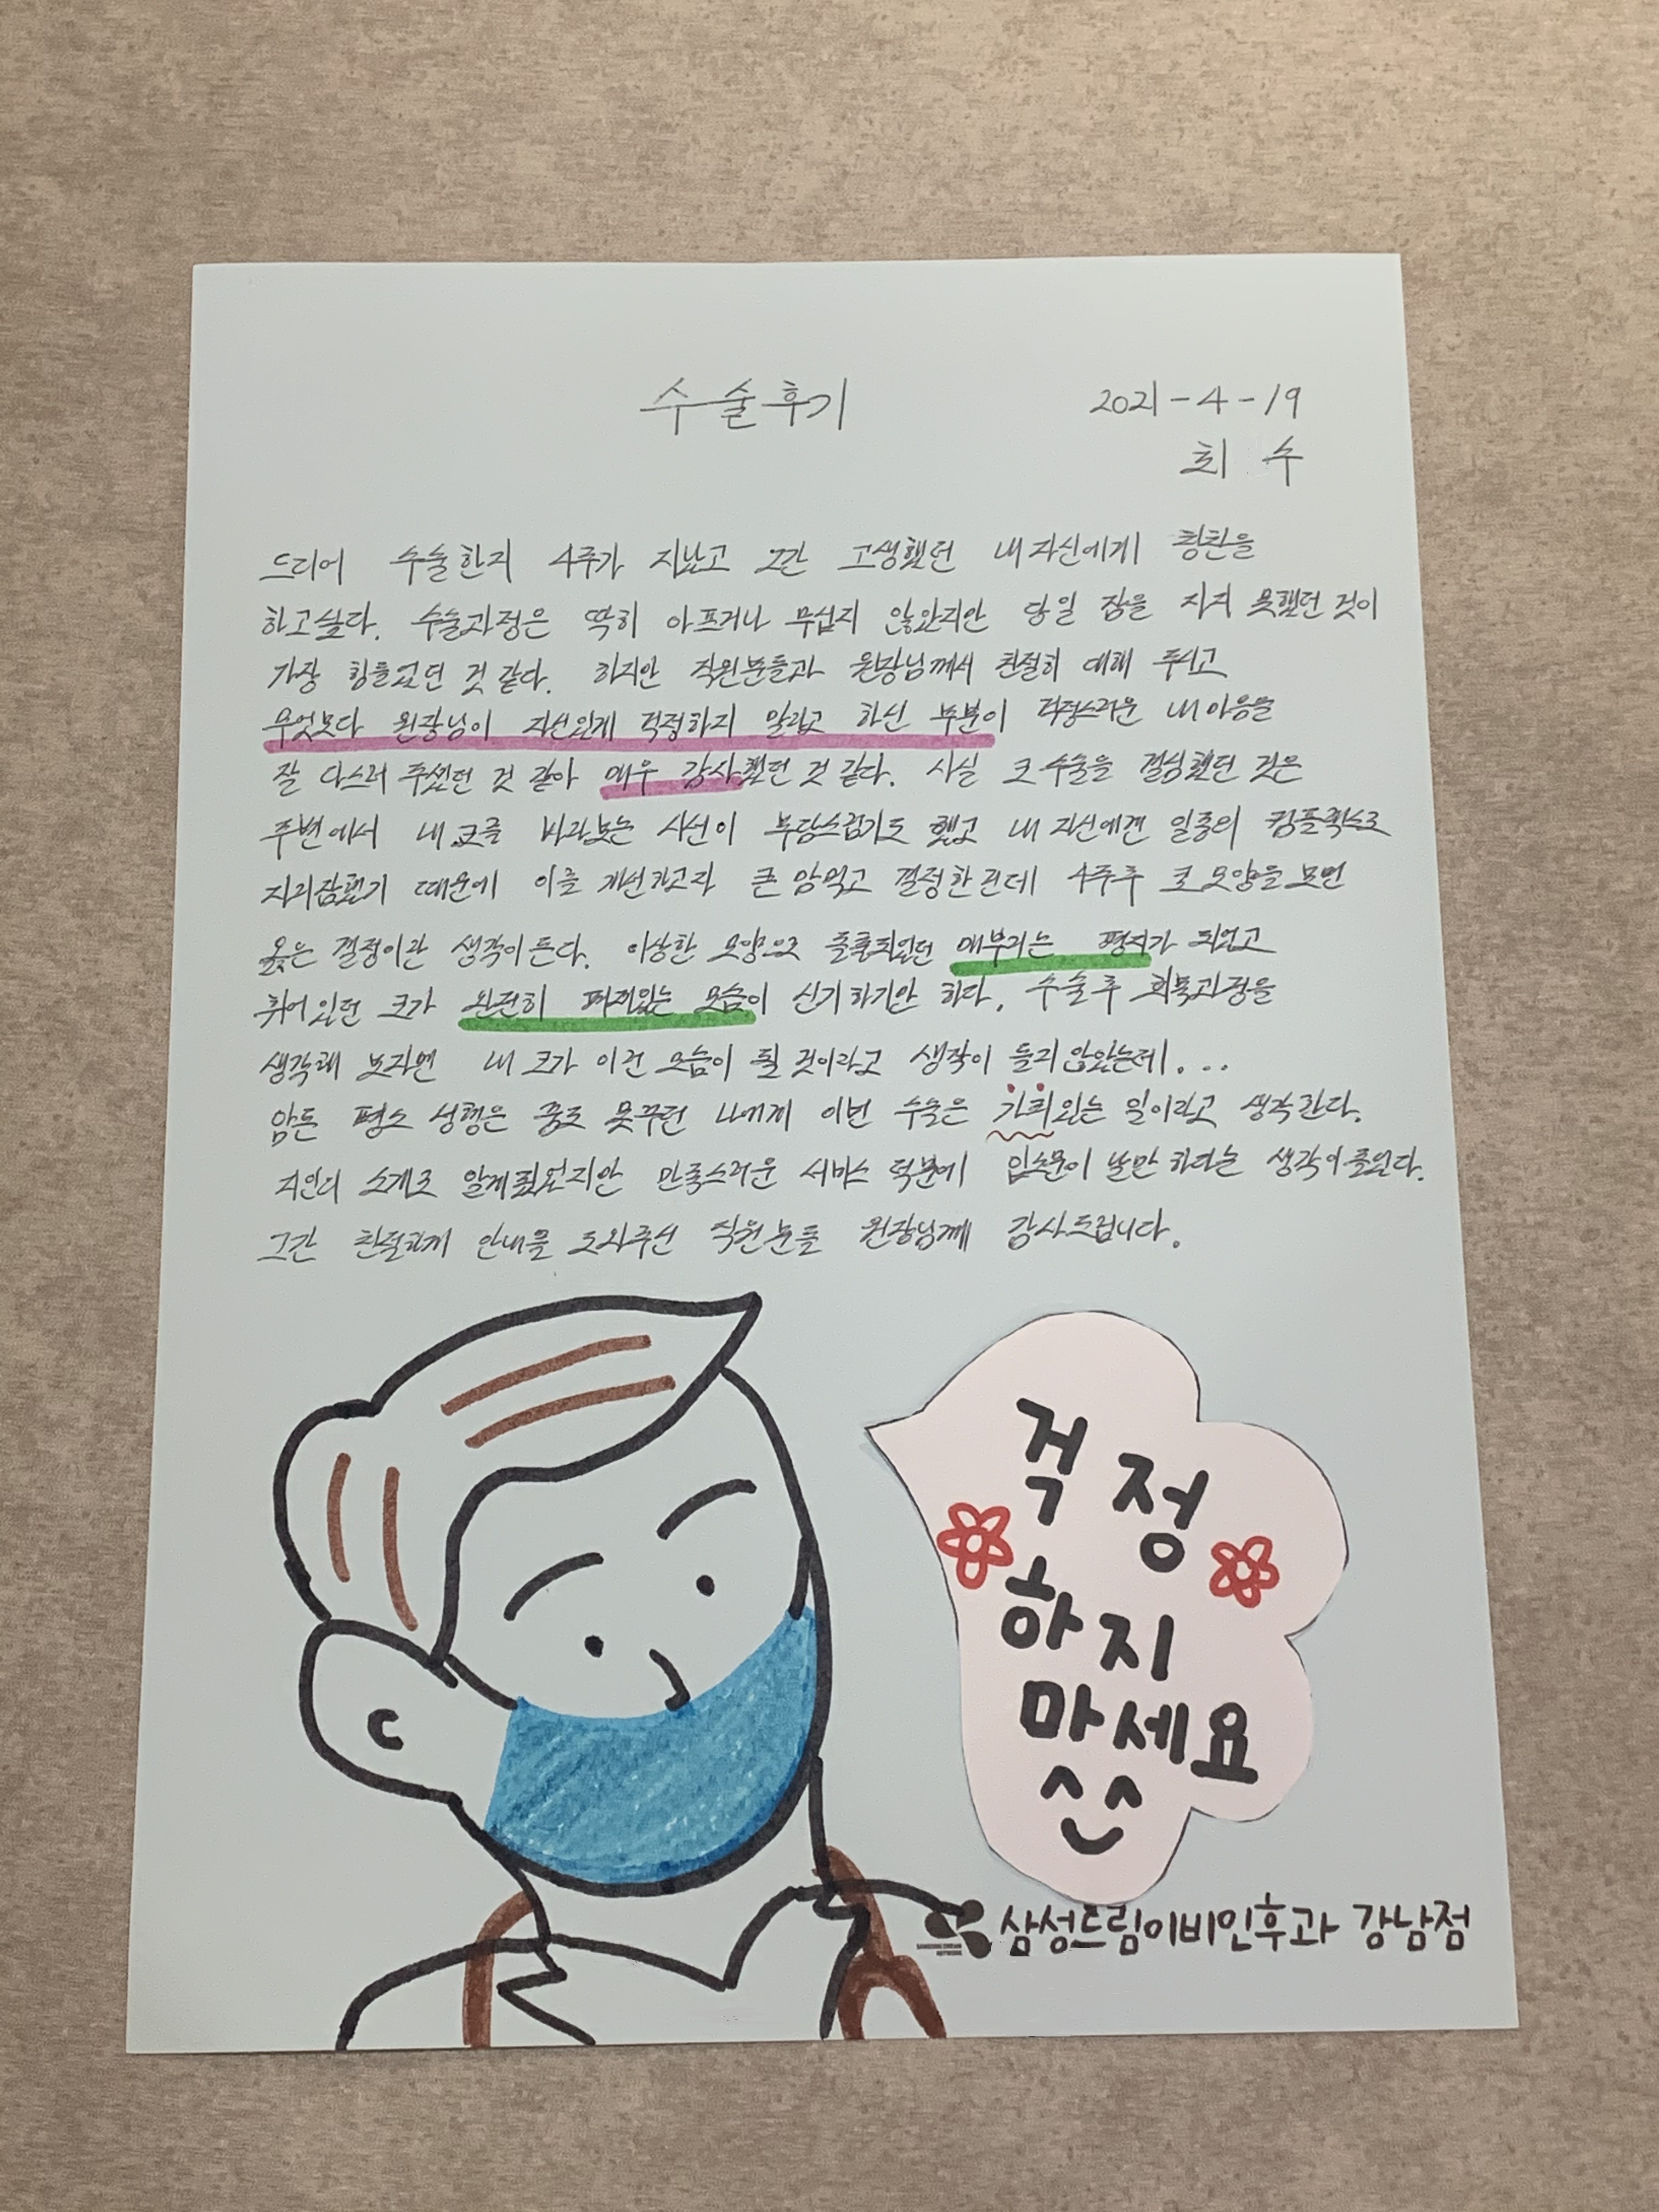 수술후기
2021-4-19
최 수
드디어 수술한지 4주가 지났고 그간 고생했던 내 자신에게 칭찬을
하고싶다. 수술과정은 딱히 아프거나 무섭지 않았지만 당일 잠을 자지 못했던 것이
가장 힘들었던 것 같다. 하지만 직원분들과 원장님께서 친절히 대해 주시고
무엇보다 원장님이 자신있게 걱정하지 말라고 하신 부분이 걱정스러운 내 마음을
잘 다스려 주셨던 것 같아 매우 감사했던 것 같다. 사실 코 수술을 결심했던 것은
주변에서 내 코를 바라보는 시선이 부담스럽기도 했고 내 자신에겐 일종의 컴플렉스로
자리잡혔기 때문에 이를 개선하고자 큰 맘먹고 결정한건데 4주후 코 모양을 보면
옳은 결정이란 생각이 든다. 이상한 모양으로 돌출되었던 매부리는 평지가 되었고
휘어있던 코가 완전히 펴져있는 모습이 신기하기만 하다. 수술후 회복과정을
생각해 보자면 내 코가 이런 모습이 될 것이라고 생각이 들지 않았는데...
암튼 평소 성형은 꿈도 못꾸던 나에게 이번 수술은 가치있는 일이라고 생각한다.
지인의 소개로 알게됐었지만 만족스러운 서비스 덕분에 입소문이 날만 하다는 생각이 들었다.
그간 친절하게 안내을 도와주신 직원분들 원장님께 감사드립니다.
걱정
하지
마세요
삼성드림이비인후과 강남점